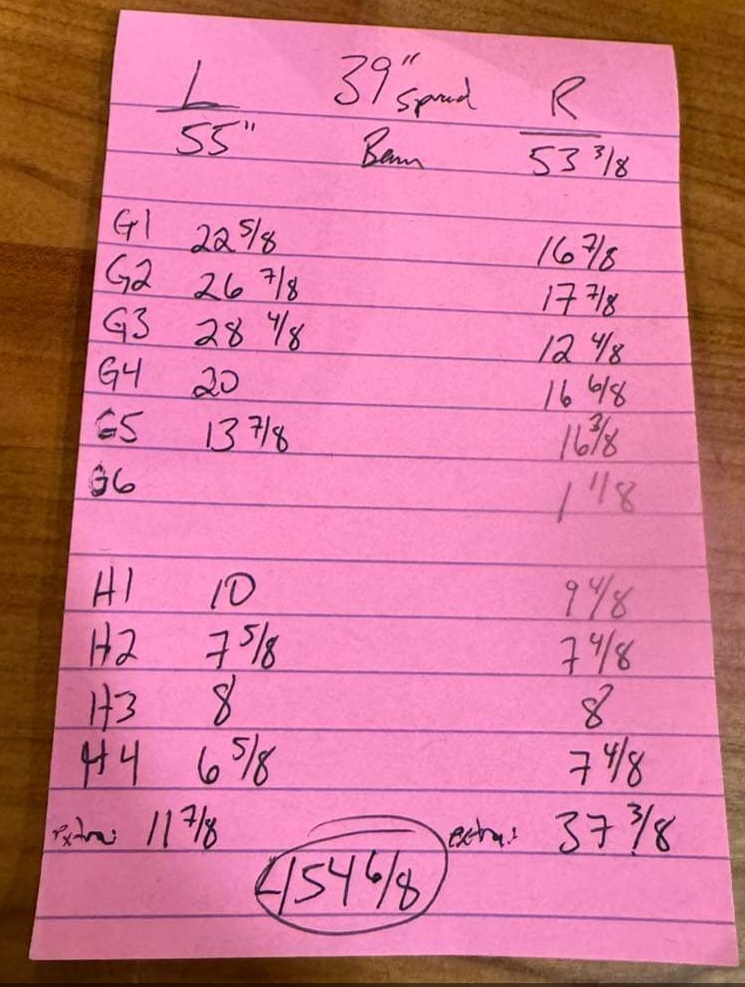 L 39" Spread R
55" Beam 53 3/8
G1 22 5/8 16 7/8
G2 26 7/8 17 7/8
G3 28 4/8 12 4/8
G4 20 16 6/8
G5 13 7/8 16 3/8
G6 1 1/8
H1 10 9 4/8
H2 7 5/8 7 4/8
H3 8 8
H4 6 5/8 7 4/8
extra: 11 7/8 extra: 37 3/8
454 6/8